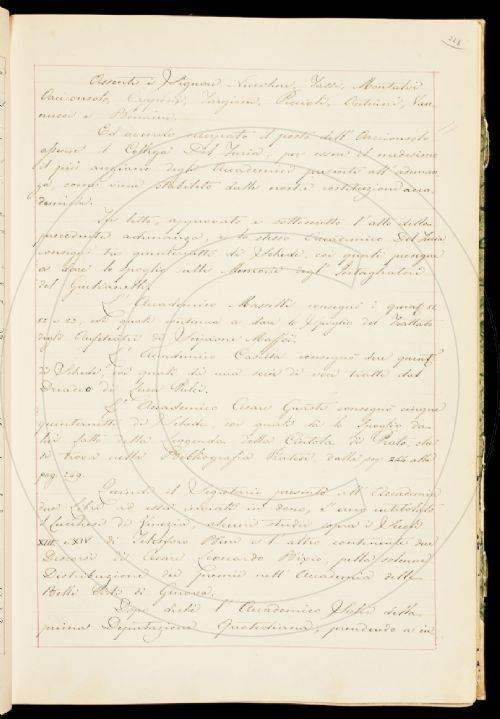 221
Assenti i Signori Niccolini, Tassi, Montalvi
Arciconsolo, Capponi, Targioni, Puccioti, Antinori, Van-
nucci e Bencini.
Ed avendo occupato il posto dell'Arciconsolo
assente il Collega Del Furia, per essere il medesimo
il più anziano degli Accademici presenti all'adunan
za, come viene stabilito dalle nostre costituzioni acca
demiche.
Fu letto, approvato e sottoscritto l'atto della
precedente adunanza, e lo stesso Accademico Del Furia
consegnò tre quinternetti di Schede, coi quali prosegue
a dare lo spoglio delle Memorie degl'Intagliatori
del Giulianelli.
L'Accademico Masselli consegnò i quint.
22 e 23, coi quali continua a dare lo Spoglio del Trattato
degli Anfiteatri di Scipione Maffei.
L'Accademico Casella consegnò due quint.
di Schede, coi quali dà una serie di voci tratte dal
Driadeo di Luca Pulci.
L'Accademico Cesare Guasti consegnò cinque
quinternetti di Schede, coi quali dà lo Spoglio da
lui fatto della Leggenda della Cintola di Prato, che
si trova nella Bibliografia Pratese dalla pag. 244 alla
pag. 249.
Quindi il Segretario presentò all'Accademia
due Libri ad essa inviati in dono, l'uno intitolato
I Lucchesi di Venezia, alcuni studi sopra i Secoli
XIII. e XIV di Telesforo Bini e l'altro contenente due
Discorsi di Cesare Leonardo Bixio, nella solenne
Distribuzione dei premi nell'Accademia delle
Belle Arti di Genova.
Dopo di che l'Accademico della
prima Deputazione Quotidiana, prendendo a